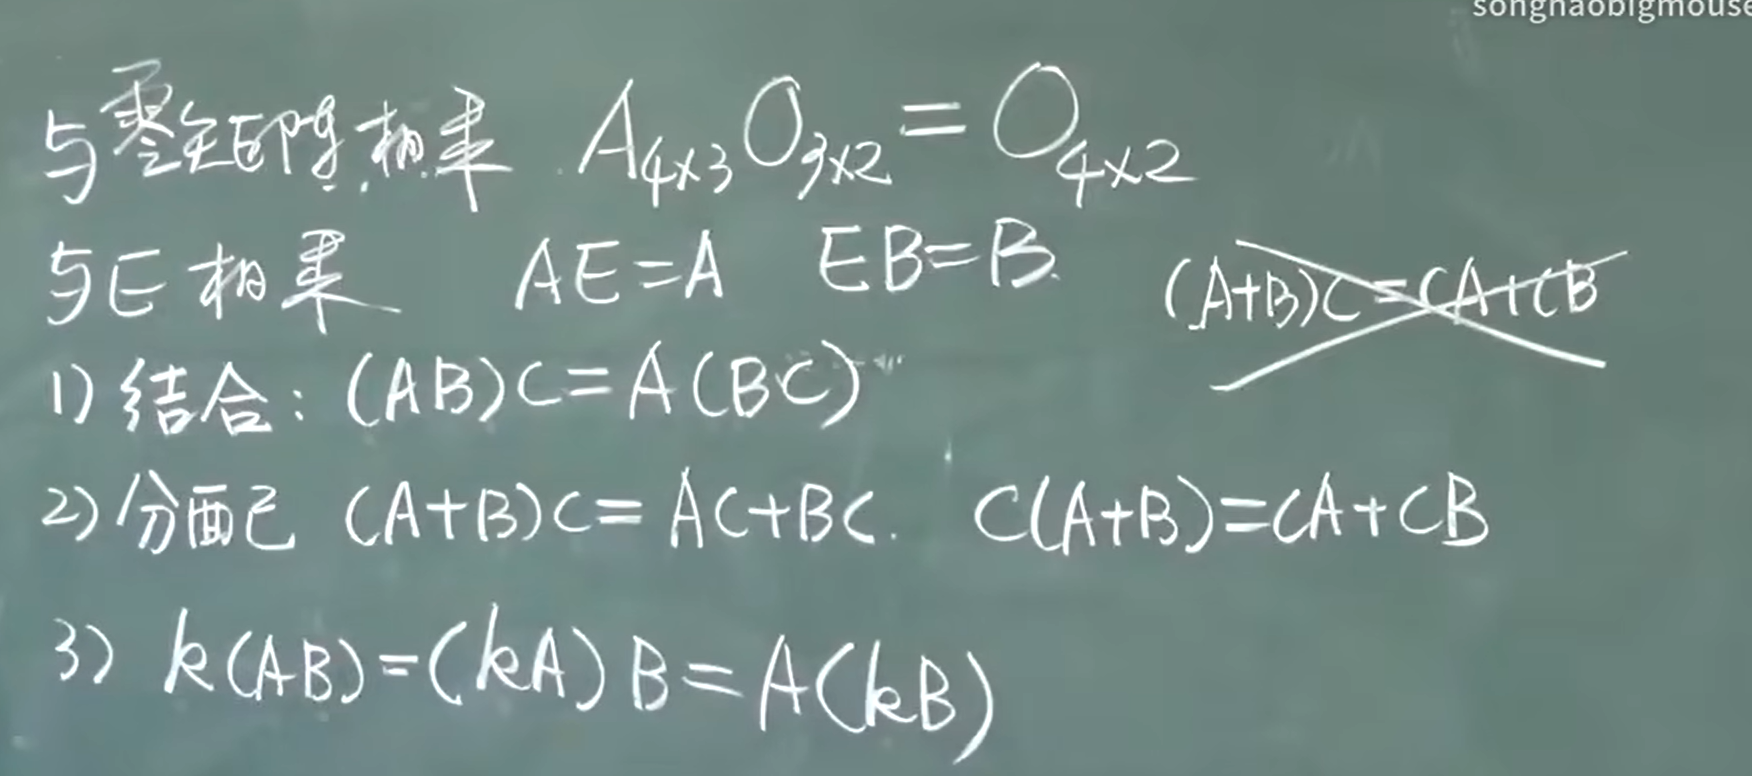 songhaobigmouse
与零矩阵相乘 A₄ₓ₃O₃ₓ₂=O₄ₓ₂
与E相乘 AE=A EB=B.
(A+B)C=CA+CB
1) 结合: (AB)C=A(BC)
2) 分配 (A+B)C=AC+BC. C(A+B)=CA+CB
3) k(AB)=(kA)B=A(kB)